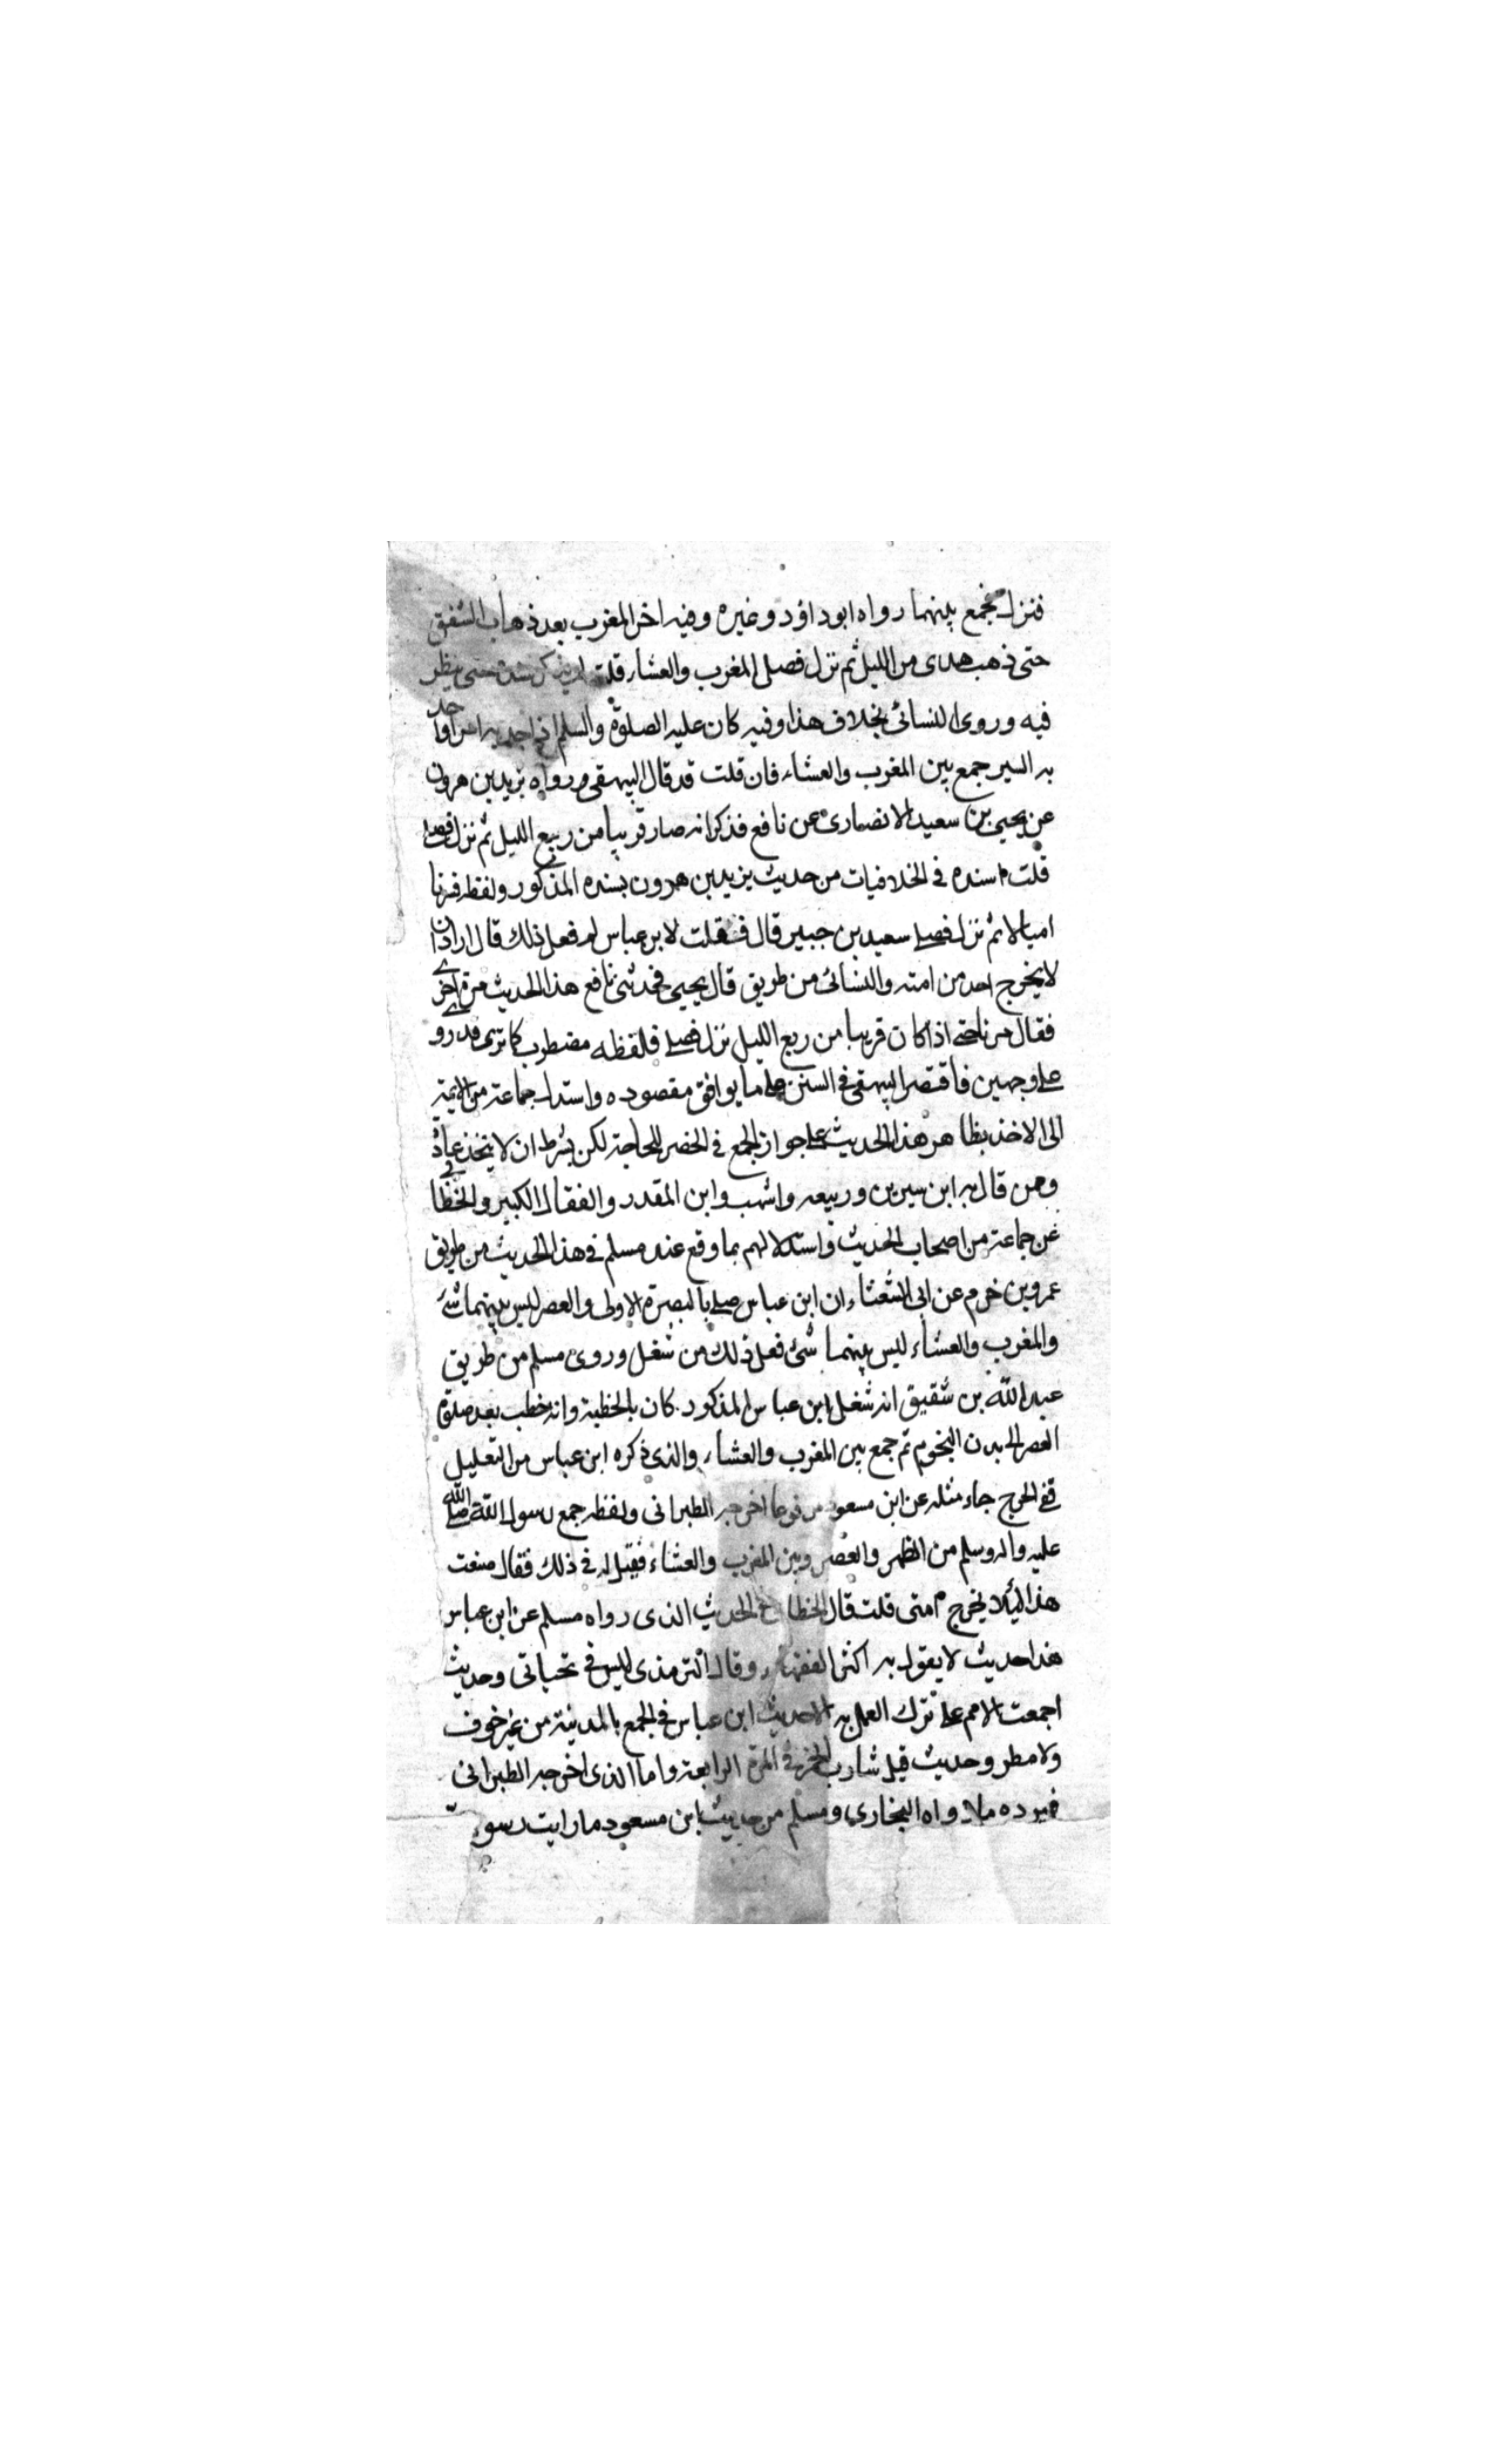 فنزل فجمع بينهما رواه ابوداؤد وغيره وفيه اخر المغرب بعد ذهاب الشفق
حتى ذهب هدى من الليل ثم نزل فصلى المغرب والعشاء قلت لم يذكر سنده حتى ينظر
فيه وروى النسائى بخلاف هذا وفيه كان عليه الصلوة والسلم اذا جد به امر او جد
به السير جمع بين المغرب والعشاء فان قلت قد قال البيهقى ورواه يزيد بن هرون
عن يحيى بن سعيد الانصارى عن نافع فذكر انه صار قريبا من ربع الليل ثم نزل فصلى
قلت اسنده فى الخلافيات من حديث يزيد بن هرون بسنده المذكور ولفظه فسرنا
اميالا ثم نزل فصلى سعيد بن جبير قال فقلت لابن عباس لم فعل ذلك قال اراد ان
لا يخرج احد من امته والنسائى من طريق قال يحيى فحدثنى نافع هذا الحديث مرة اخرى
فقال سرنا حتى اذا كان قريبا من ربع الليل نزل فصلى فلفظه مضطرب كما ترى قد روى
على وجهين فاقتصر البيهقى فى السنن على ما يوافق مقصوده واستدل جماعة من الايمة
الى الاخذ بظاهر هذا الحديث على جواز الجمع فى الحضر للحاجة لكن بشرط ان لا يتخذ عادة
وممن قال به ابن سيرين وربيعه واشهب وابن المقدر والفقال الكبير والخطابى
عن جماعة من اصحاب الحديث واستدلالهم بما وقع عند مسلم فى هذا الحديث من طريق
عمرو بن خرم عن ابى الشعثاء ان ابن عباس صلى بالبصرة الاولى والعصر ليس بينهما شئ
والمغرب والعشاء ليس بينهما شئ فعل ذلك من شغل وروى مسلم من طريق
عبد الله بن شقيق انه شغل ابن عباس المذكور كان بالخطبة وانه خطب بعد صلوة
العصر الى بدن النجوم ثم جمع بين المغرب والعشاء والذى ذكره ابن عباس من التعليل
قفى الحرج جاء مثله عن ابن مسعود مرفوعا اخرجه الطبرانى ولفظه جمع رسول الله صلى الله
عليه واله وسلم من الظهر والعصر وبين المغرب والعشاء فقيل له فى ذلك فقال صنعت
هذا ليلا يخرج امتى قلت قال الخطابى الحديث الذى رواه مسلم عن ابن عباس
هذا حديث لا يقول به اكثر الفقهاء وقال الترمذى ليس فى حديث
اجمعت الامم على ترك العمل به الا حديث ابن عباس فى الجمع بالمدينة من غير خوف
ولا مطر وحديث قتل شارب الخمر فى المرة الرابعة واما الذى اخرجه الطبرانى
فيرده ما رواه البخارى ومسلم من حديث ابن مسعود ما رايت رسول